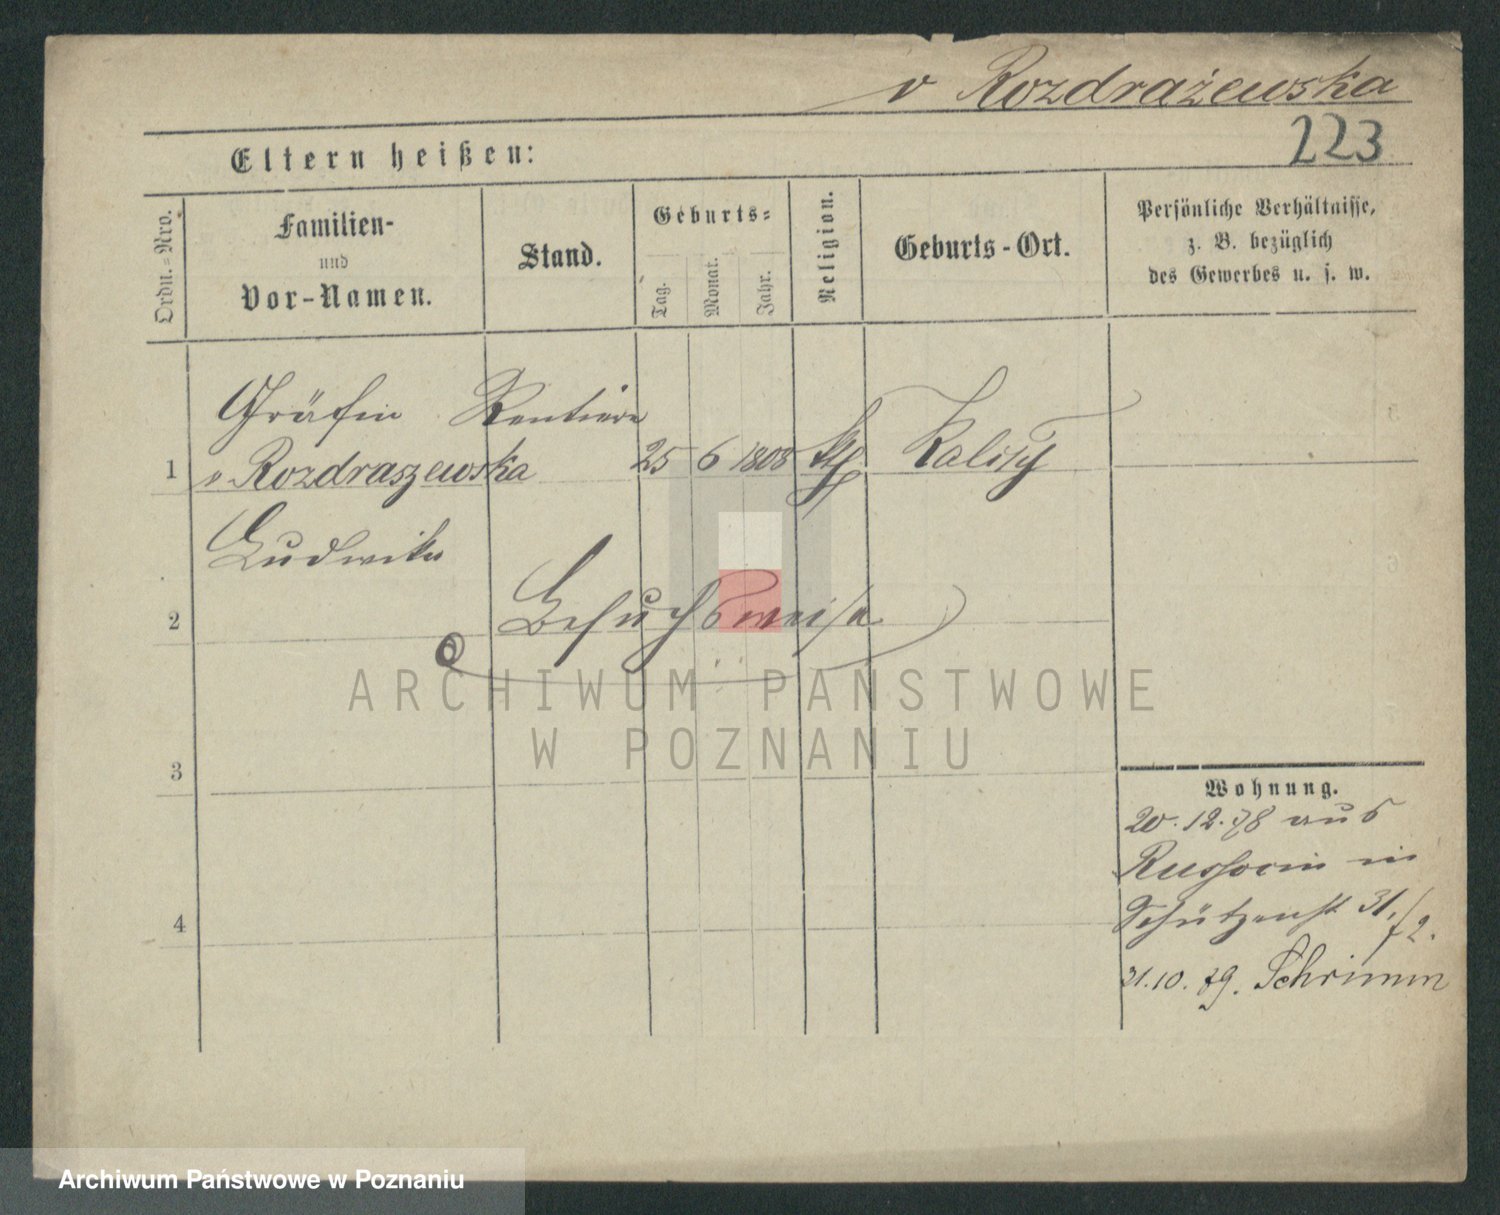 v Rozdrażewska
223
Eltern heißen:
Ordn.-Nro.
Familien-
und
Vor-Namen.
Stand.
Geburts-
Tag.
Monat.
Jahr.
Religion.
Geburts-Ort.
Persönliche Verhältnisse,
z. B. bezüglich
des Gewerbes u. s. w.
Gräfin Rentiere
1 v Rozdraszewska 25 6 1808 kth Kalisch
Ludwika
2 Besuchsweise
ARCHIWUM PAŃSTWOWE
W POZNANIU
3
Wohnung.
20.12.78 aus
in
4 Schützenst 31./2.
31.10.79. Schrimm
Archiwum Państwowe w Poznaniu